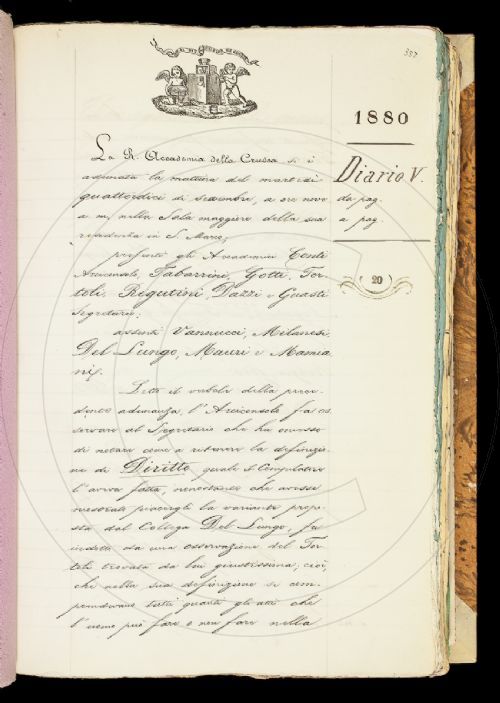 357
1880
Diario V.
da pag.
a pag.
( 20 )
La R. Accademia della Crusca si è
adunata la mattina del martedì
quattordici di dicembre, a ore nove
a m, nella Sala maggiore della sua
residenza in S. Marco;
presenti gli Accademici Conti
Arciconsolo, Tabarrini, Gotti, Tor-
toli, Rigutini, Dazzi e Guasti
Segretario:
assenti Vannucci, Milanesi,
Del Lungo, Mauri e Mamia
ni.
Letto il verbale della prece-
dente adunanza, l'Arciconsolo fa os
servare al Segretario che ha omesso
di notare come a ritenere la definizio
ne di Diritto quale il Compilatore
l'aveva fatta, nonostante che avesse
mostrato piacergli la variante propo-
sta dal Collega Del Lungo, fu
indotto da una osservazione del Tor-
toli trovata da lui giustissima; cioè,
che nella sua definizione si com-
prendevano tutti quanti gli atti che
l'uomo può fare o non fare nella